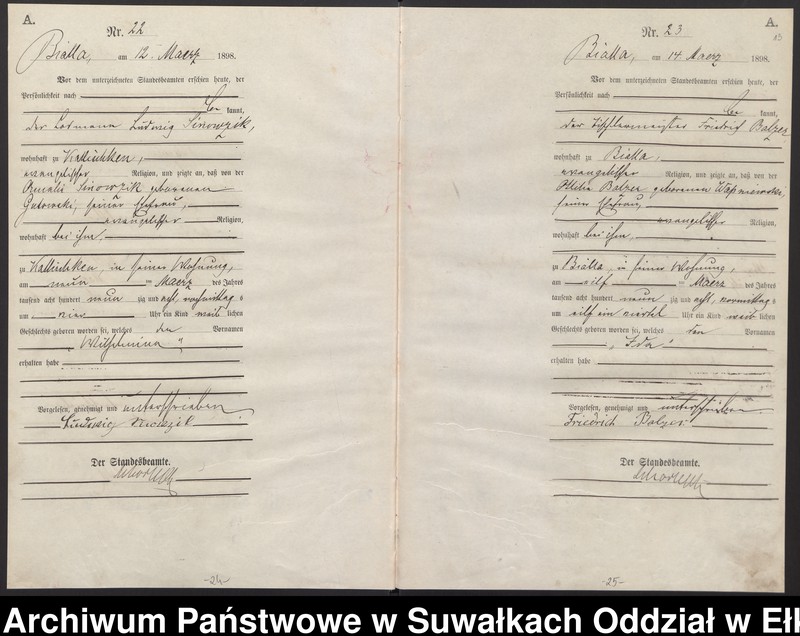 A.
Nr. 22
Bialla, am 12. Maerz 1898.
Vor dem unterzeichneten Standesbeamten erschien heute, der
Persönlichkeit nach
be kannt,
der Losmann Ludwig Sinowzik,
wohnhaft zu
evangelischer Religion, und zeigte an, daß von der
Amalie Sinowzik geborenen
Gutowski, seiner Ehefrau,
evangelischer Religion,
wohnhaft bei ihm,
zu in seiner Wohnung,
am neun ten Maerz des Jahres
tausend acht hundert neun zig und acht, vormittag s
um vier Uhr ein Kind weib lichen
Geschlechts geboren worden sei, welches den Vornamen
„Wilhelmina“
erhalten habe
Vorgelesen, genehmigt und unterschrieben
Ludwig
Der Standesbeamte.
-24-
A.
Nr. 23
13
Bialla, am 14. Maerz 1898.
Vor dem unterzeichneten Standesbeamten erschien heute, der
Persönlichkeit nach
be kannt,
der Tischlermeister Friedrich Balzer
wohnhaft zu Bialla,
evangelischer Religion, und zeigte an, daß von der
Ottilie Balzer geborenen
seiner Ehefrau,
evangelischer Religion,
wohnhaft bei ihm,
zu Bialla, in seiner Wohnung,
am eilf ten Maerz des Jahres
tausend acht hundert neun zig und acht, vormittag s
um eilf ein viertel Uhr ein Kind weib lichen
Geschlechts geboren worden sei, welches den Vornamen
„Ida“
erhalten habe
Vorgelesen, genehmigt und unterschrieben.
Friedrich Balzer
Der Standesbeamte.
-25-
Archiwum Państwowe w Suwałkach Oddział w Ełk